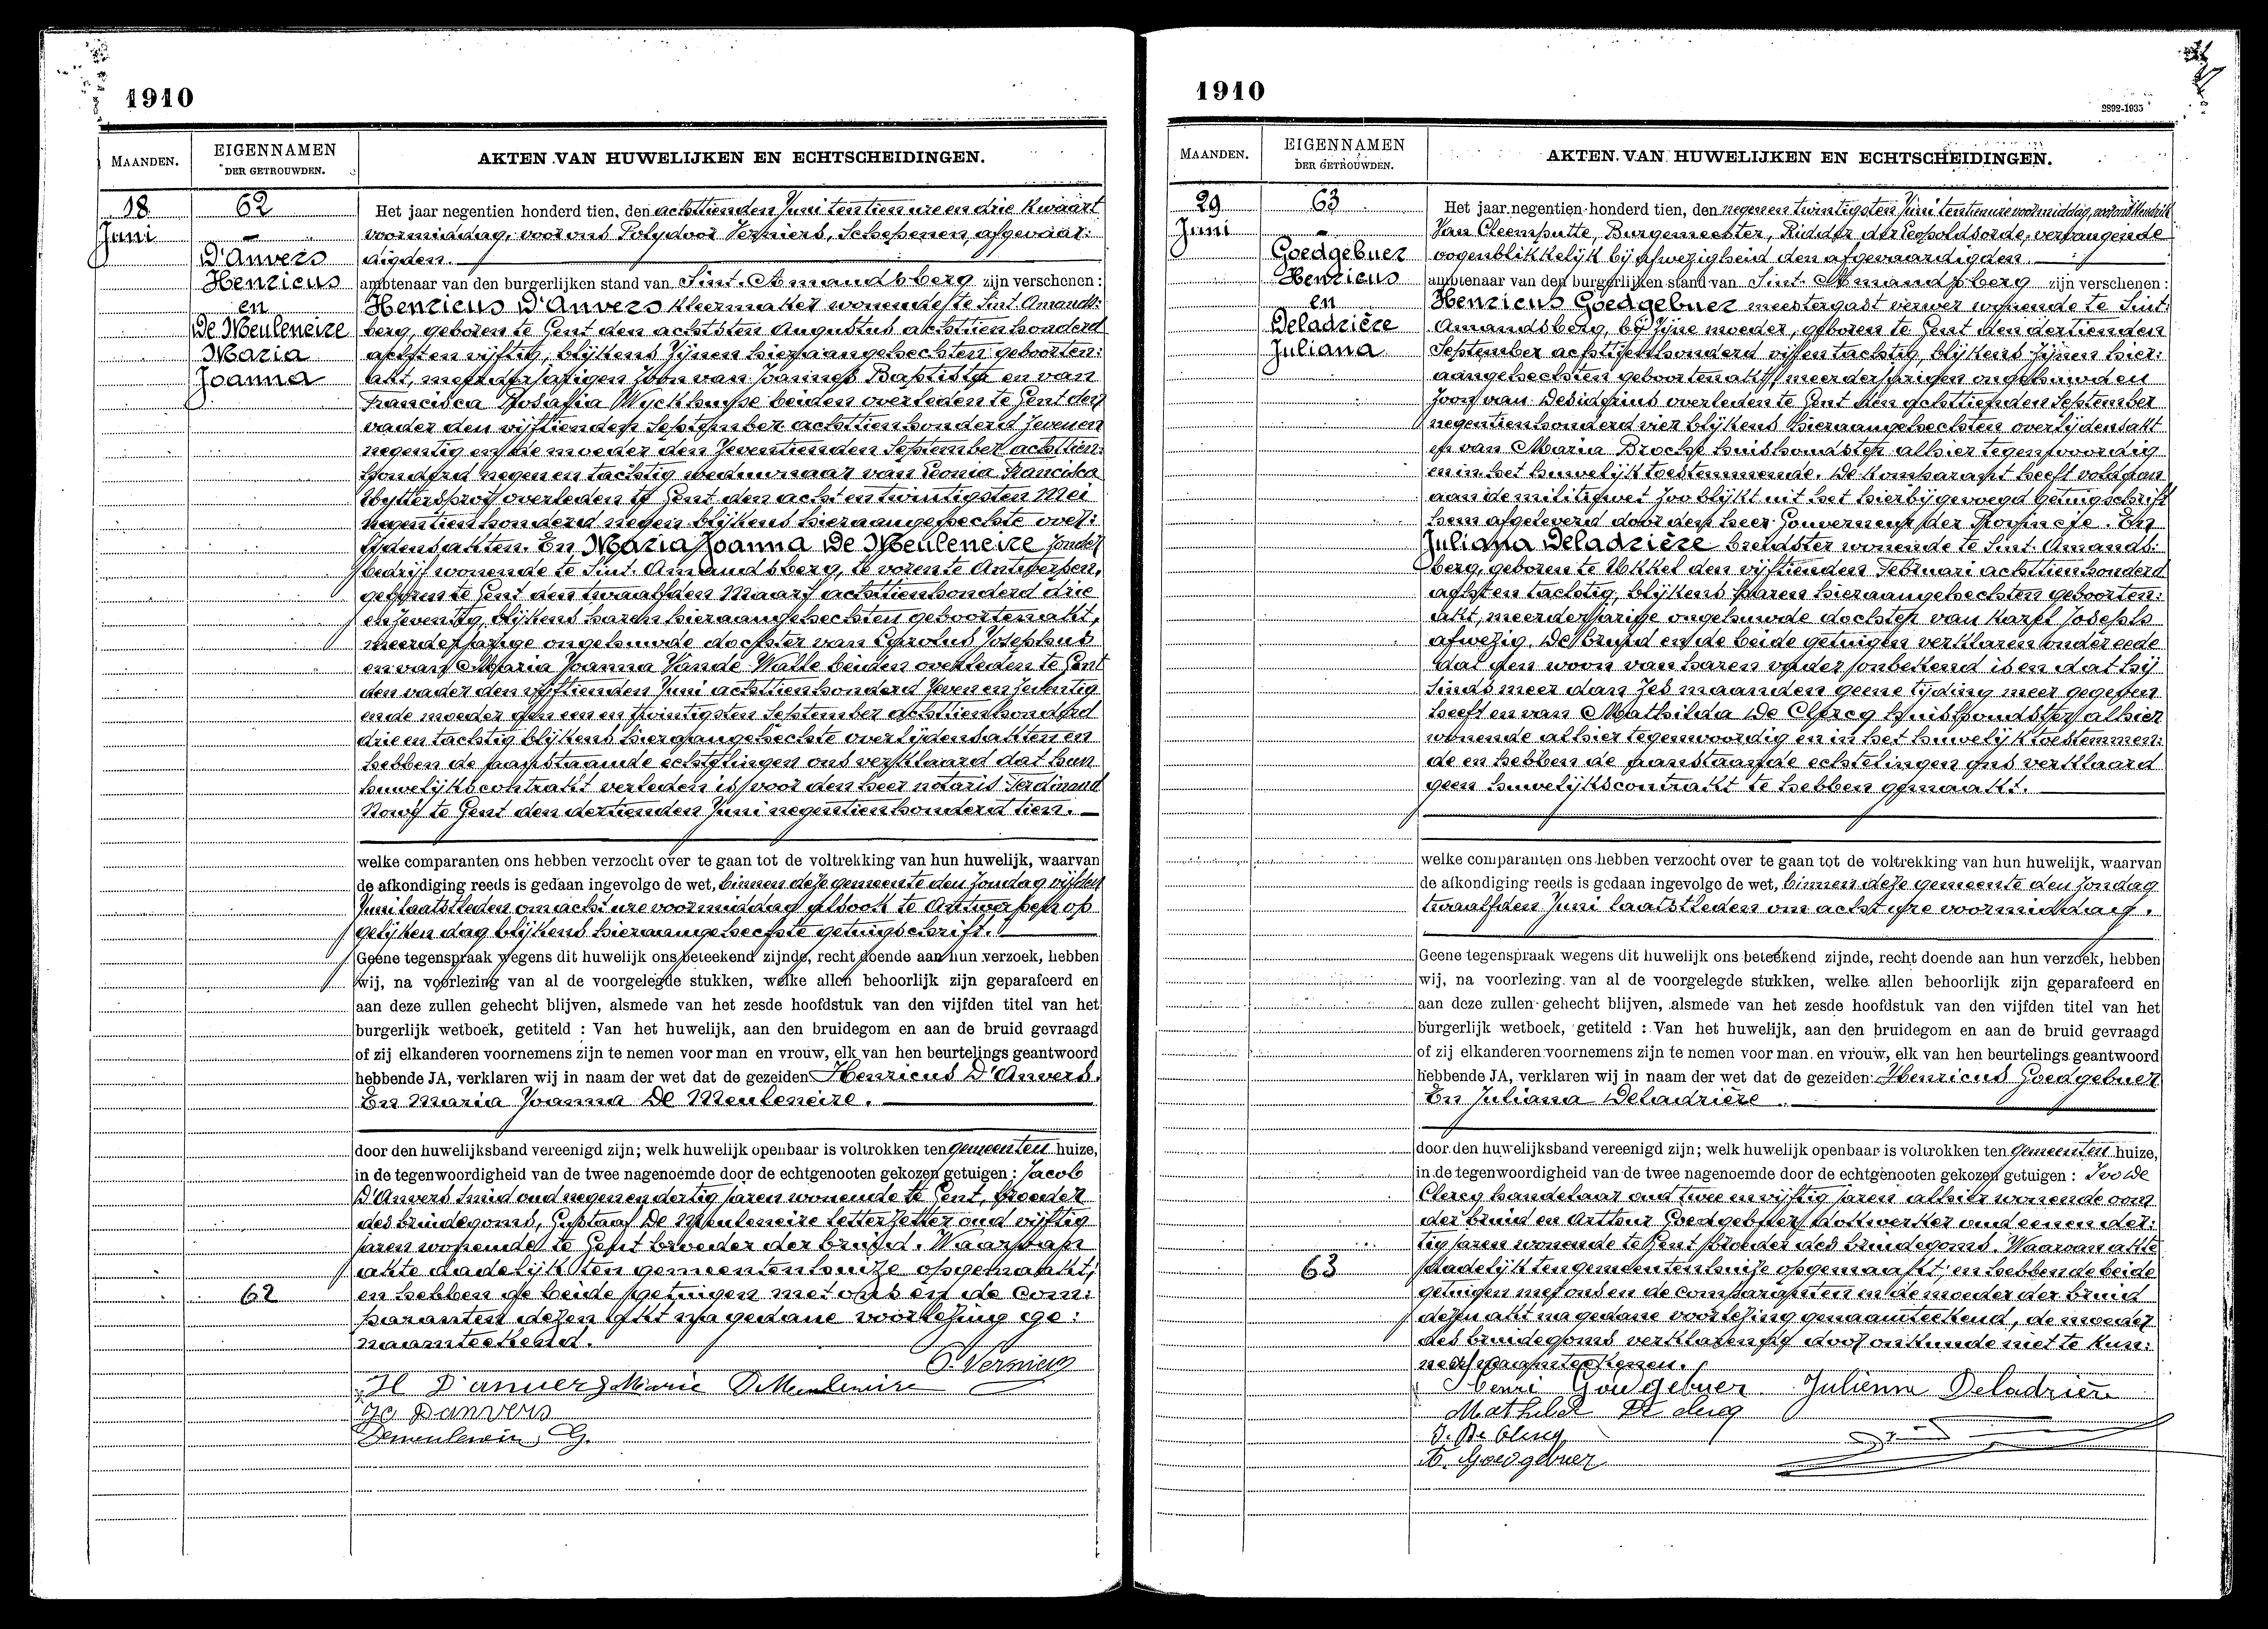 1910
MAANDEN.
EIGENNAMEN
DER GETROUWDEN.
AKTEN VAN HUWELIJKEN EN ECHTSCHEIDINGEN.
18
Juni
62
D'Anvers
Henricus
en
De Meuleneire
Maria
Joanna
Het jaar negentien honderd tien, den achttienden Juni ten tien ure en drie kwaart
voormiddag, voor ons Polydoor Verniers, Schepenen, afgevaar:
digden.
ambtenaar van den burgerlijken stand van Sint-Amandsberg zijn verschenen:
Henricus D'Anvers kleermaker wonende te Sint-Amands:
berg, geboren te Gent den achtsten Augustus achttienhonderd
acht en vijftig, blijkens zijnen hieraangehechten geboorten:
akt, meerderjarigen zoon van Joannes Baptista en van
Francisca Rosalia Wyckhuyse beiden overleden te Gent den
vader den vijftienden September achttienhonderd zeven en
negentig en de moeder den zeventienden September achttien:
honderd negen en tachtig weduwnaar van Leonia Francisca
overleden te Gent den acht en twintigsten Mei
negentienhonderd negen blijkens hieraangehechte over:
lijdensakten. En Maria Joanna De Meuleneire zonder
bedrijf wonende te Sint-Amandsberg, te voren te Antwerpen,
geboren te Gent den twaalfden Maart achttienhonderd drie
en zeventig, blijkens haren hieraangehechten geboortenakt,
meerderjarige ongehuwde dochter van Carolus Josephus
en van Maria Joanna Vande Walle beiden overleden te Gent
den vader den vijftienden Juni achttienhonderd zeven en zeventig
en de moeder den een en twintigsten September achttienhonderd
drie en tachtig blijkens hieraangehechte overlijdensakten en
hebben de aanstaande echtelingen ons verklaard dat hun
huwelijkscontrakt verleden is voor den heer notaris Ferdinand
te Gent den dertienden Juni negentienhonderd tien.
welke comparanten ons hebben verzocht over te gaan tot de voltrekking van hun huwelijk, waarvan
de afkondiging reeds is gedaan ingevolge de wet, binnen deze gemeente den Zondag vijfden
Juni laatstleden om acht ure voormiddag alsook te Antwerpen op
gelijken dag blijkens hieraangehechte getuigschrift.
Geene tegenspraak wegens dit huwelijk ons beteekend zijnde, recht doende aan hun verzoek, hebben
wij, na voorlezing van al de voorgelegde stukken, welke allen behoorlijk zijn geparafeerd en
aan deze zullen gehecht blijven, alsmede van het zesde hoofdstuk van den vijfden titel van het
burgerlijk wetboek, getiteld : Van het huwelijk, aan den bruidegom en aan de bruid gevraagd
of zij elkanderen voornemens zijn te nemen voor man en vrouw, elk van hen beurtelings geantwoord
hebbende JA, verklaren wij in naam der wet dat de gezeiden Henricus D'Anvers.
En Maria Joanna De Meuleneire.
door den huwelijksband vereenigd zijn; welk huwelijk openbaar is voltrokken ten gemeenten huize,
in de tegenwoordigheid van de twee nagenoemde door de echtgenooten gekozen getuigen : Jacob
D'Anvers smid oud negen en dertig jaren wonende te Gent, broeder
des bruidegoms, Gustaaf De Meuleneire letterzetter oud vijftig
jaren wonende te Gent broeder der bruid. Waarvan
akte dadelijk ten gemeentenhuize opgemaakt;
en hebben de beide getuigen met ons en de com:
paranten dezen akt na gedane voorlezing ge:
naamteekend.
62
P. Verniers
H D'anvers Marie DeMeuleneire
Jc Danvers
Demeuleneire G.
1910
2892-1935
MAANDEN.
EIGENNAMEN
DER GETROUWDEN.
AKTEN VAN HUWELIJKEN EN ECHTSCHEIDINGEN.
29
Juni
63
Goedgebuer
Henricus
en
Deladrière
Juliana
Het jaar negentien honderd tien, den negen en twintigsten Juni ten tien ure voormiddag, voor ons Hendrik
Van Cleemputte, Burgemeester, Ridder der Leopoldsorde, vervangende
oogenblikkelijk bij afwezigheid den afgevaardigden
ambtenaar van den burgerlijken stand van Sint-Amandsberg zijn verschenen:
Henricus Goedgebuer meestergast verwer wonende te Sint:
Amandsberg, bij zijne moeder, geboren te Gent den dertienden
September achttienhonderd vijf en tachtig, blijkens zijnen hier:
aangehechten geboortenakt, meerderjarigen ongehuwden
zoon van Desiderius overleden te Gent den achttienden September
negentienhonderd vier blijkens hieraangehechten overlijdensakt
en van Maria Broche huishoudster alhier tegenwoordig
en in het huwelijk toestemmende. De komparant heeft voldaan
aan de militiewet zoo blijkt uit het hierbijgevoegd getuigschrift
hem afgeleverd door den heer Gouverneur der Provincie. En
Juliana Deladrière breidster wonende te Sint-Amands:
berg, geboren te Ukkel den vijftienden Februari achttienhonderd
acht en tachtig, blijkens haren hieraangehechten geboorten:
akt, meerderjarige ongehuwde dochter van Karel Joseph
afwezig. De bruid en de beide getuigen verklaren onder eede
dat den woon van haren vader onbekend is en dat hij
sinds meer dan zes maanden geene tijding meer gegeven
heeft en van Mathilda De Clercq huishoudster alhier
wonende alhier tegenwoordig en in het huwelijk toestemmen:
de en hebben de aanstaande echtelingen ons verklaard
geen huwelijkscontrakt te hebben gemaakt.
welke comparanten ons hebben verzocht over te gaan tot de voltrekking van hun huwelijk, waarvan
de afkondiging reeds is gedaan ingevolge de wet, binnen deze gemeente den Zondag
twaalfden Juni laatstleden om acht ure voormiddag.
Geene tegenspraak wegens dit huwelijk ons beteekend zijnde, recht doende aan hun verzoek, hebben
wij, na voorlezing van al de voorgelegde stukken, welke allen behoorlijk zijn geparafeerd en
aan deze zullen gehecht blijven, alsmede van het zesde hoofdstuk van den vijfden titel van het
burgerlijk wetboek, getiteld : Van het huwelijk, aan den bruidegom en aan de bruid gevraagd
of zij elkanderen voornemens zijn te nemen voor man en vrouw, elk van hen beurtelings geantwoord
hebbende JA, verklaren wij in naam der wet dat de gezeiden: Henricus Goedgebuer
En Juliana Deladrière.
door den huwelijksband vereenigd zijn; welk huwelijk openbaar is voltrokken ten gemeenten huize,
in de tegenwoordigheid van de twee nagenoemde door de echtgenooten gekozen getuigen : Ivo De
Clercq handelaar oud twee en vijftig jaren alhier wonende oom
der bruid en Arthur Goedgebuer dokwerker oud een en der:
tig jaren wonende te Gent broeder des bruidegoms. Waarvan akte
dadelijk ten gemeentenhuize opgemaakt; en hebben de beide
getuigen met ons en de comparanten en de moeder der bruid
dezen akt na gedane voorlezing genaamteekend, de moeder
des bruidegoms verklaren dit door onkunde niet te kun:
nen naamteekenen.
63
Henri Goedgebuer Julienne Deladrière
Mathilde De clercq
I. De Clercq
A. Goedgebuer